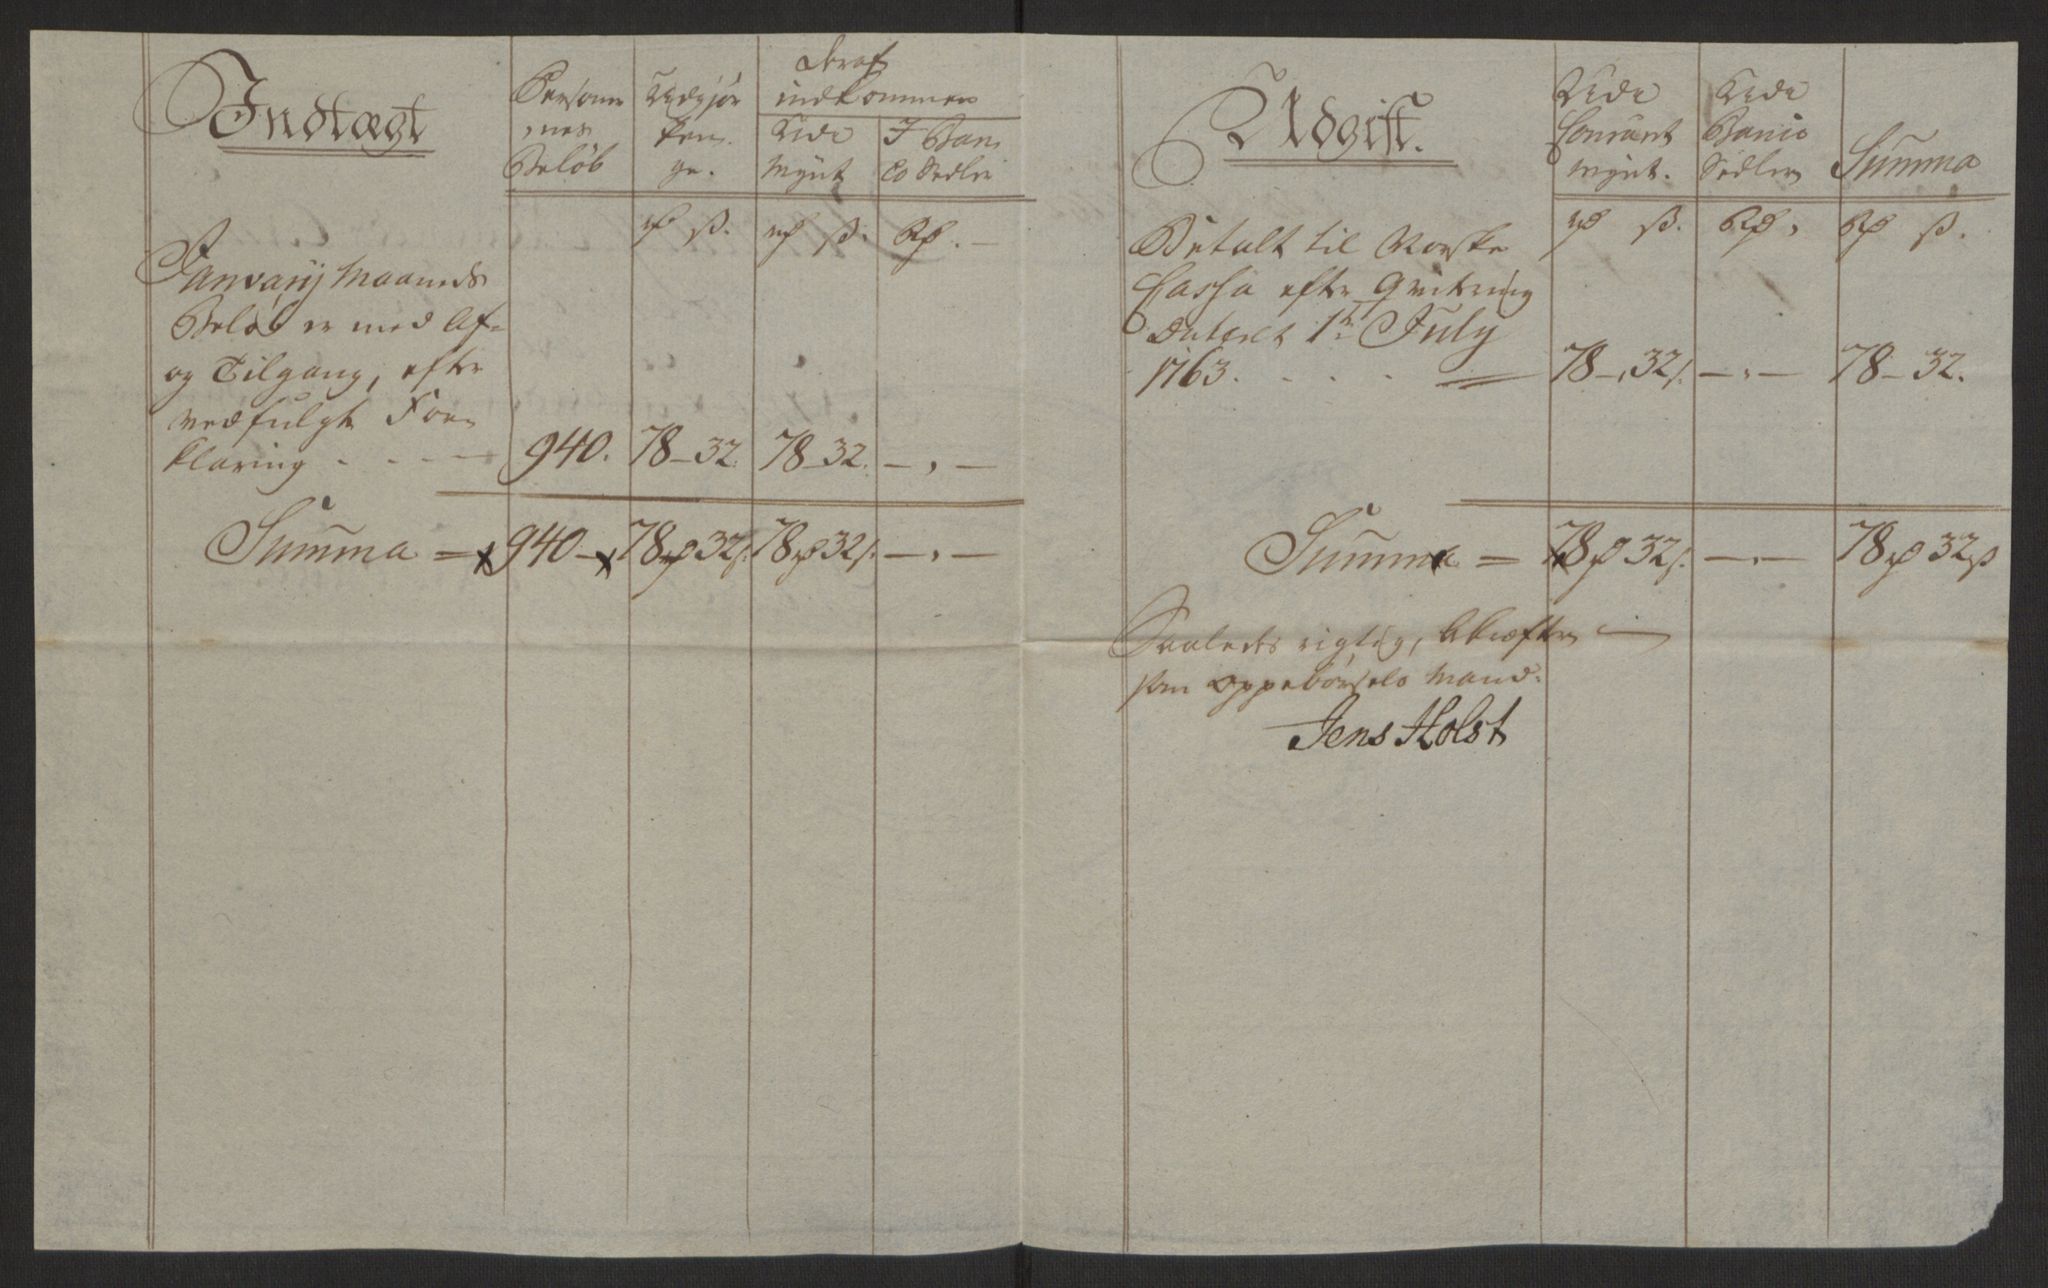 Indtægt
Person
nes
Beløb
Udgiør
Pen-
ge.
Deraf
indkommen
Udi
Mÿnt
I Ban
co Sedler
rd ß.
rd ß.
Rd.
Januarij Maaneds
Beløb er med Af-
og Tilgang, efter
vedfulgte For-
klaring - - - -
940.
78 - 32.
78 - 32.
- , -
Summa = 940 - 78 rd 32 ß. 78 rd 32 ß. - , -
Udgift.
Udi
Courant
Mÿnt.
Udi
Banco
Sedler
Summa
rd ß.
Rd,
Rd ß.
Betalt til Norske
Cassa efter Qvitering
dateret 1te July
1763. - - -
78 -, 32 ß.
- , -
78 - 32.
Summa = 78 rd 32 ß. - , - 78 rd 32 ß
Saaledes rigtig, bekræfter
som Oppebørsels Mand.
Jens Holst